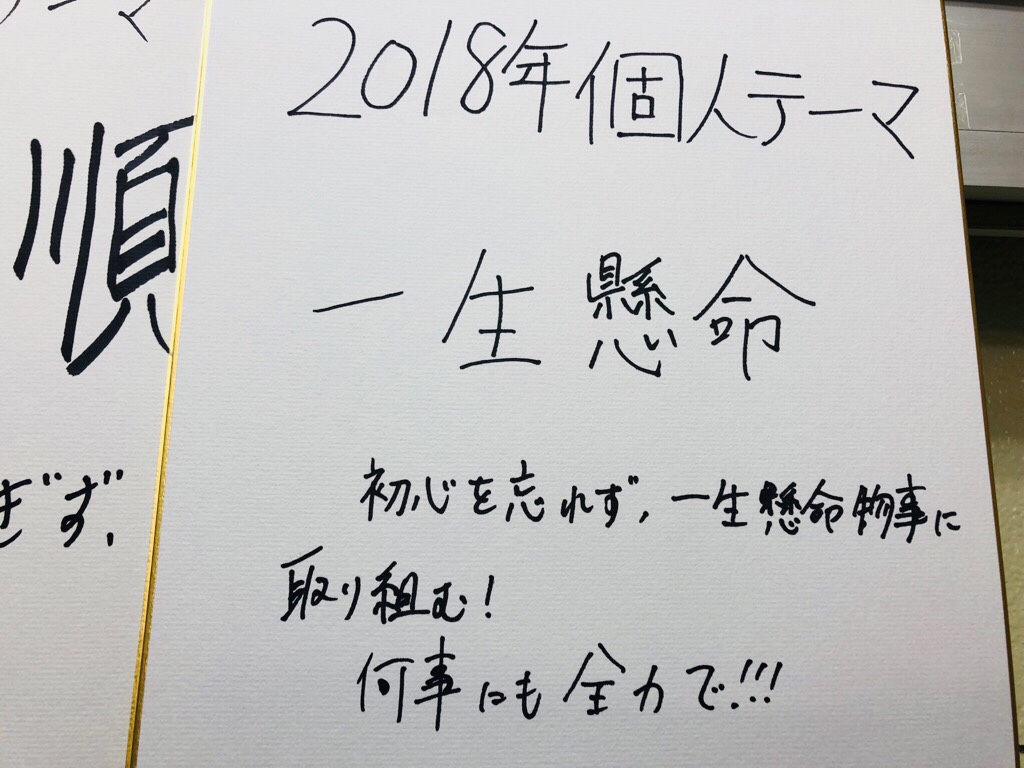 2018年個人テーマ
一生懸命
初心を忘れず、一生懸命物事に
取り組む!
何事にも全力で!!!
ーマ
順
ぎず、